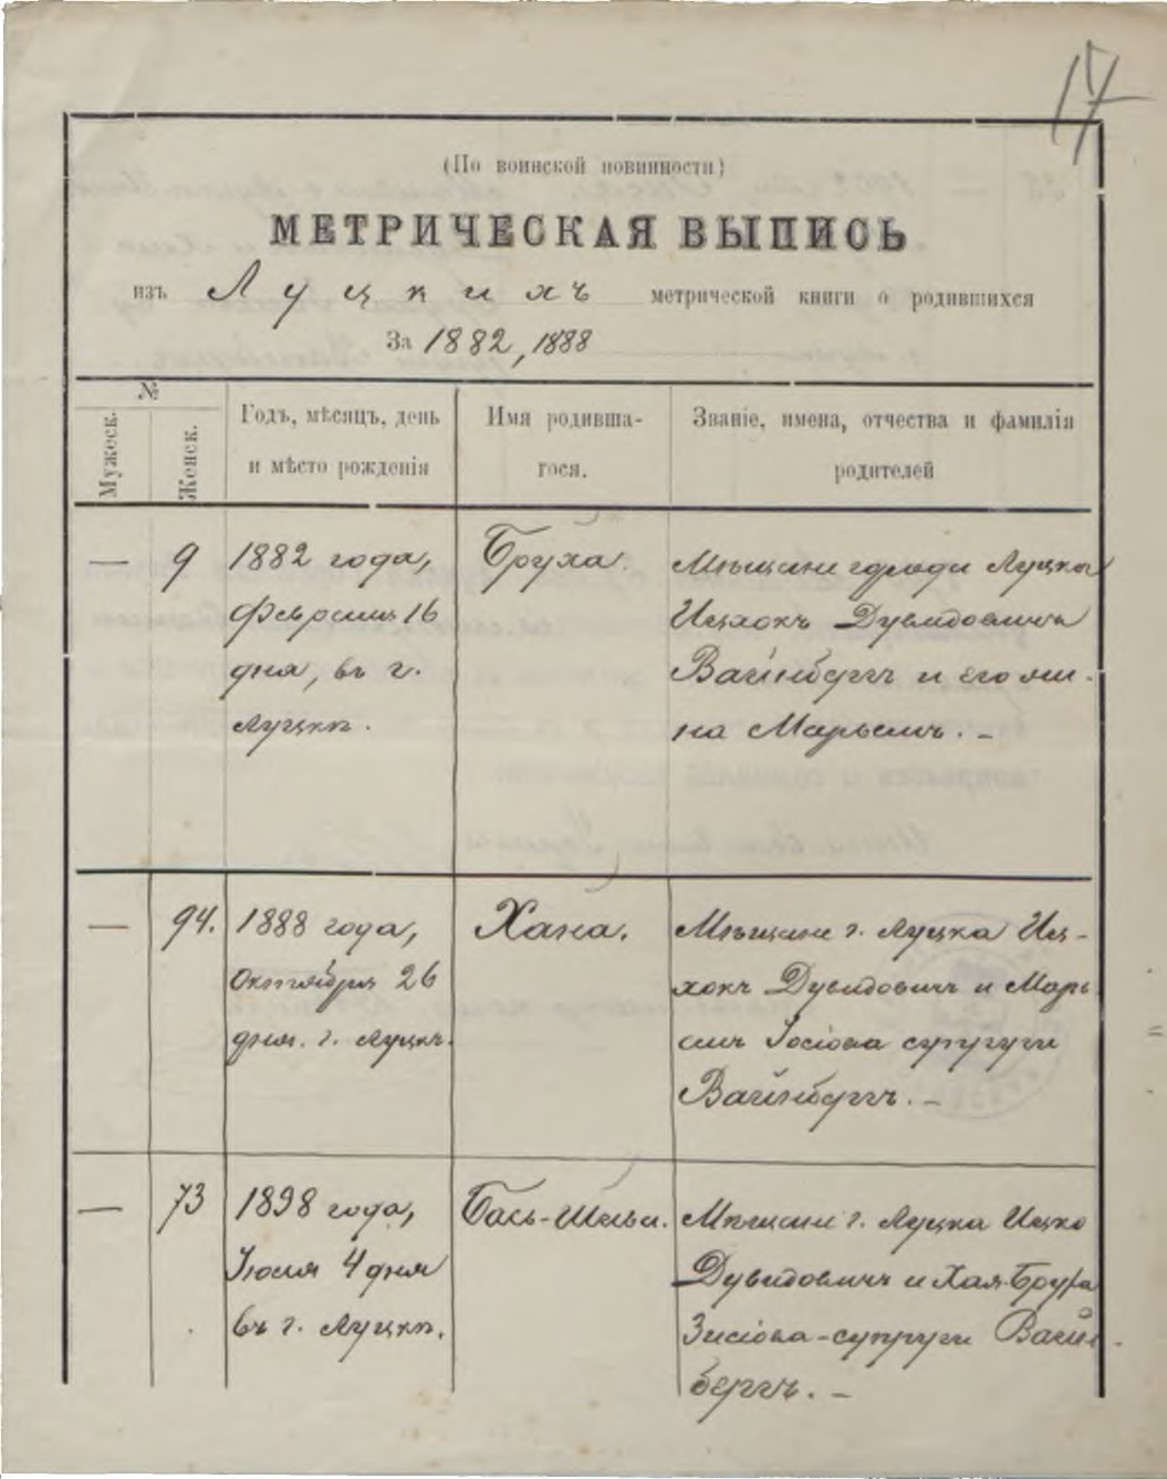 17
(По воинской повинности)
МЕТРИЧЕСКАЯ ВЫПИСЬ
изъ Луцкихъ метрической книги о родившихся
За 1882, 1888
№
Мужеск.
Женск.
Годъ, мѣсяцъ, день
и мѣсто рожденія
Имя родивша-
гося.
Званіе, имена, отчества и фамилія
родителей
— 9 1882 года, Бруха. Мѣщане города Луцка
Февраля 16 Ицхокъ Дувидовичъ
дня, въ г. Вайнбергъ и его же-
Луцкѣ. на Марьемъ. –
— 94. 1888 года, Хана. Мѣщане г. Луцка Иц-
Октября 26 хокъ Дувидовичъ и Марь
дня. г. Луцкъ. емъ Іосіова супруги
Вайнбергъ. –
— 73 1898 года, Бась-Шева. Мѣщане г. Луцка Ицко
Іюля 4 дня Дувидовичъ и Хая-Бруха
въ г. Луцкѣ. Зисіова-супруги Вайн-
бергъ. –